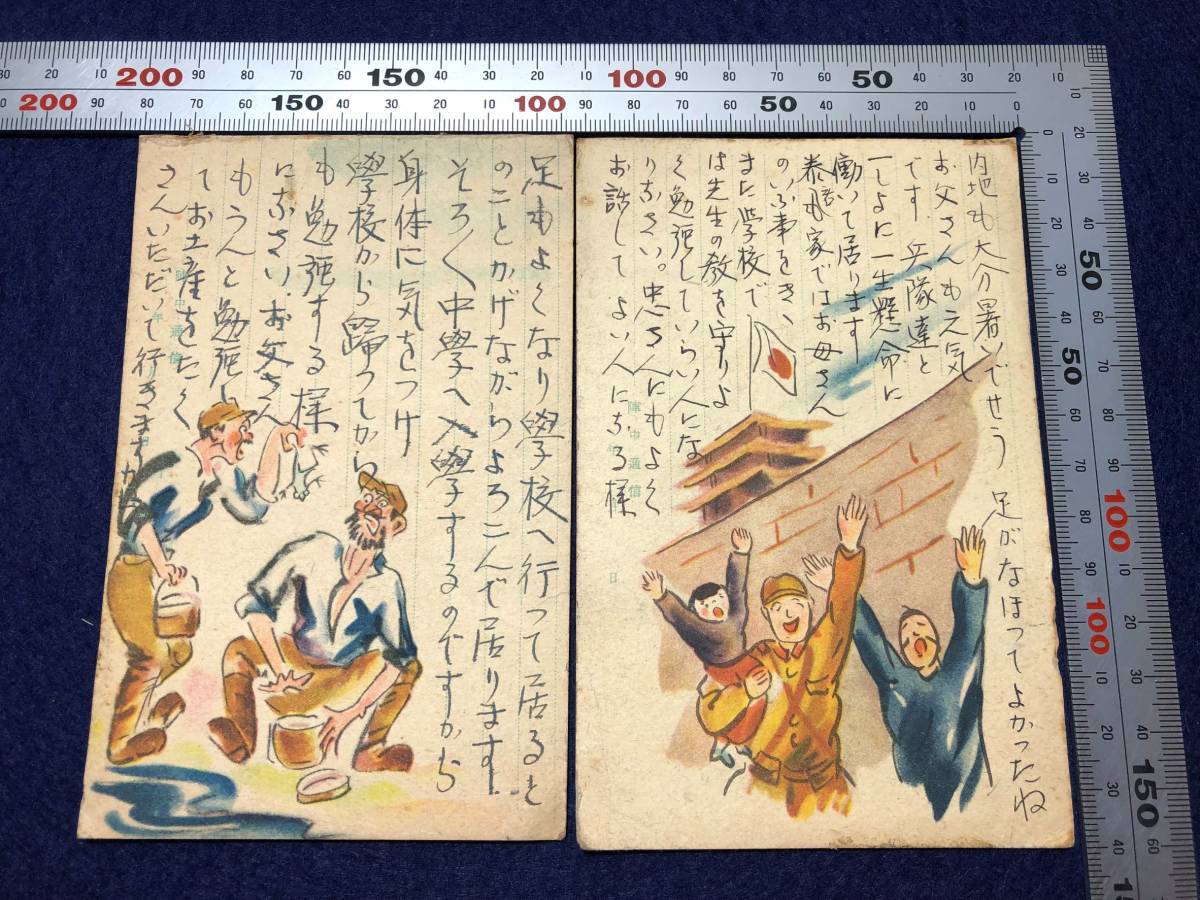 30 10 200 90 80 70 60 150 40 30 20 10 100 90 80 70 60 50 40 30 20 10
200 90 80 70 60 150 40 30 20 10 100 90 80 70 60 50 40 30 20 10 0
内地も大分暑いでせう 足がなほってよかったね
お父さんも元気
です 兵隊達と
一しよに一生懸命に
働いて居ります
も家ではお母さん
のいふ事をきゝ
また学校で
は先生の教を守りよ
く勉強していらい人にな
りなさい。忠さんにもよく
お話してよい人になる様
陣中通信
日
足もよくなり學校へ行って居ると
のことかげながらよろこんで居ります
そろ〱中學へ入學するのですから
身体に気をつけ
學校から歸ってから
も勉强する様
になさい お父さん
もうんと勉強し
てお土産をたく
さんいただいて行きますから
陣中通信
年